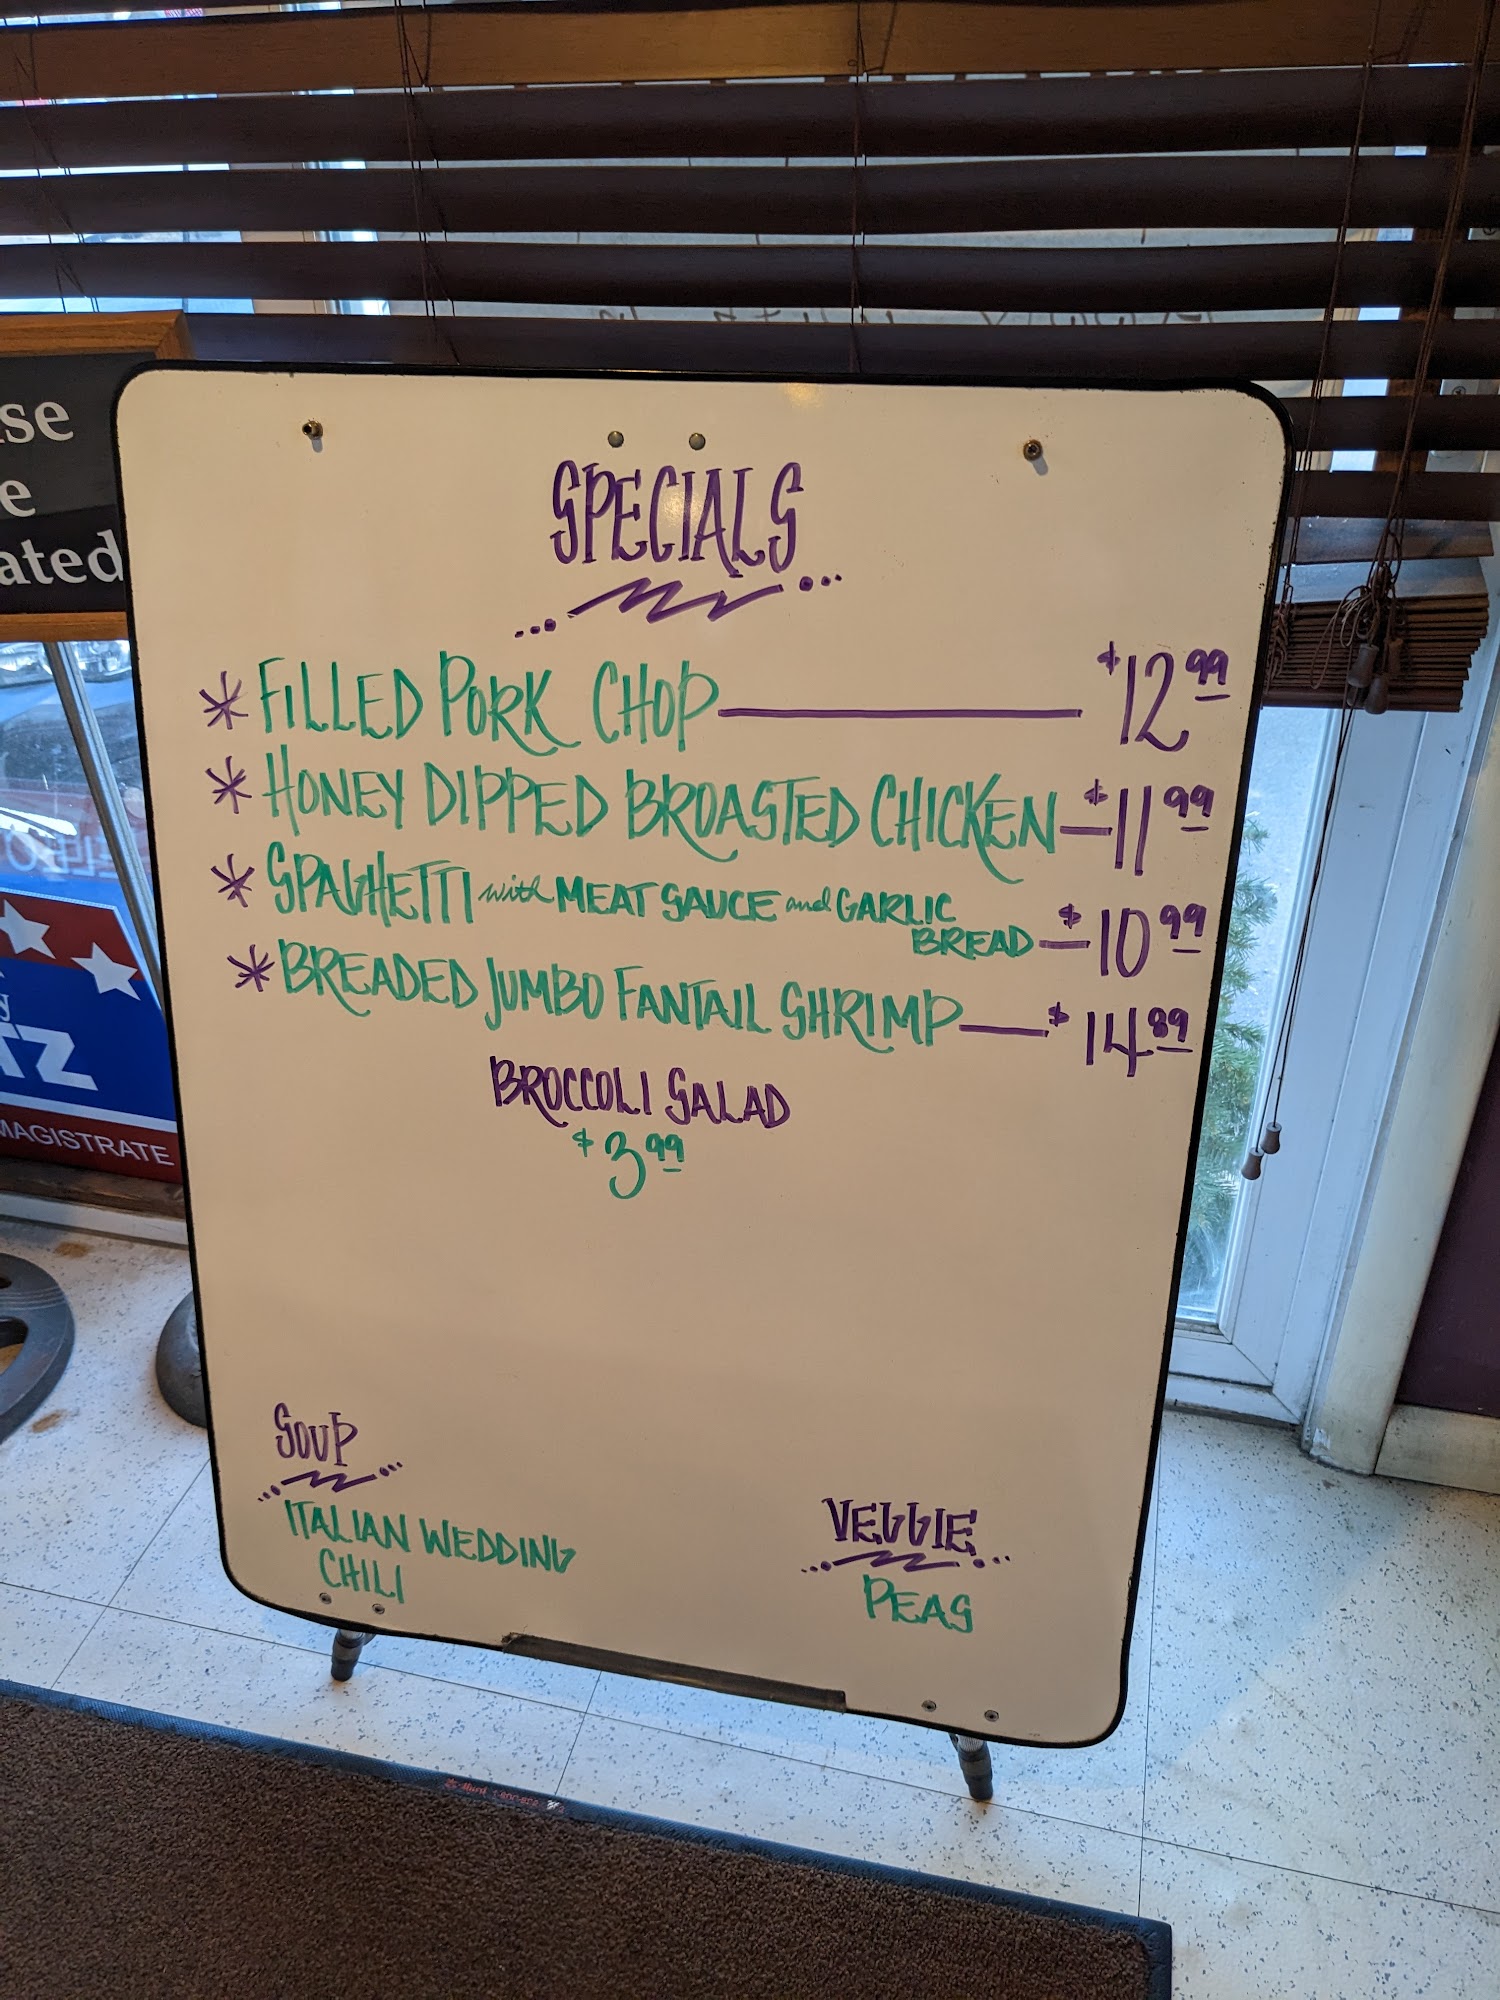 SPECIALS
* FILLED PORK CHOP — $12.99
* HONEY DIPPED BROASTED CHICKEN — $11.99
* SPAGHETTI with MEAT SAUCE and GARLIC
BREAD — $10.99
* BREADED JUMBO FANTAIL SHRIMP — $14.89
BROCCOLI SALAD
$3.99
SOUP
ITALIAN WEDDING
CHILI
VEGGIE
PEAS
MAGISTRATE